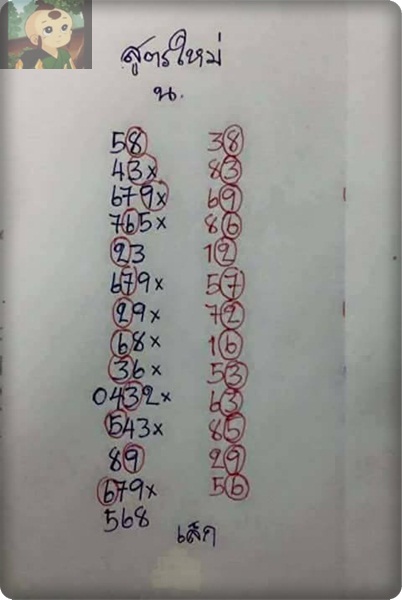 สูตรใหม่
น.
58 38
43x 83
679x 69
765x 86
23 12
679x 57
29x 72
68x 16
36x 53
0432x 63
543x 85
89 29
679x 56
568
เล็ก